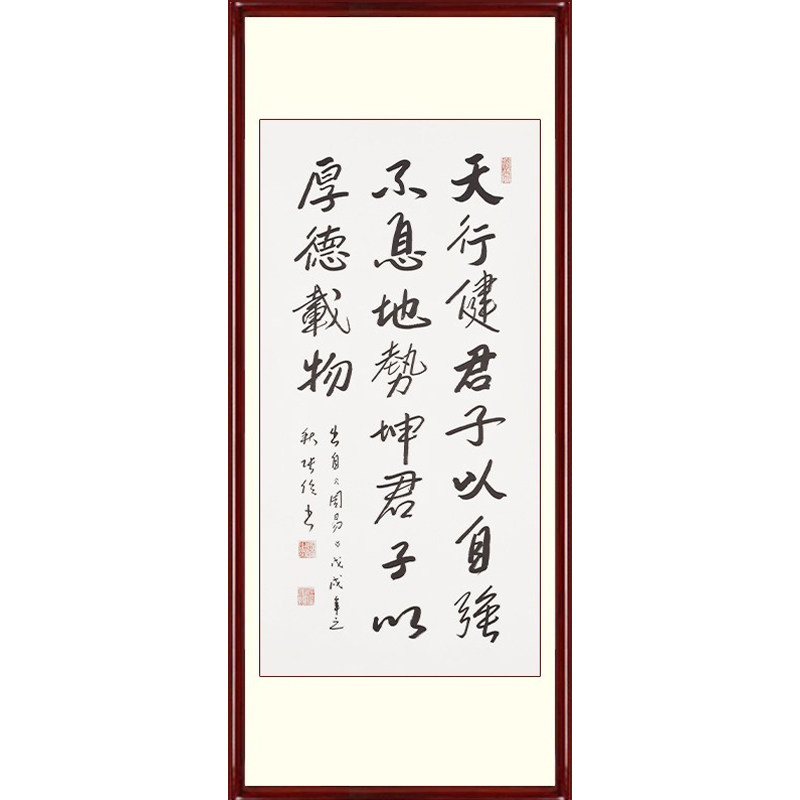 天行健君子以自強
不息地勢坤君子以
厚德載物
出自《周易》戊戌年之
秋張俊書